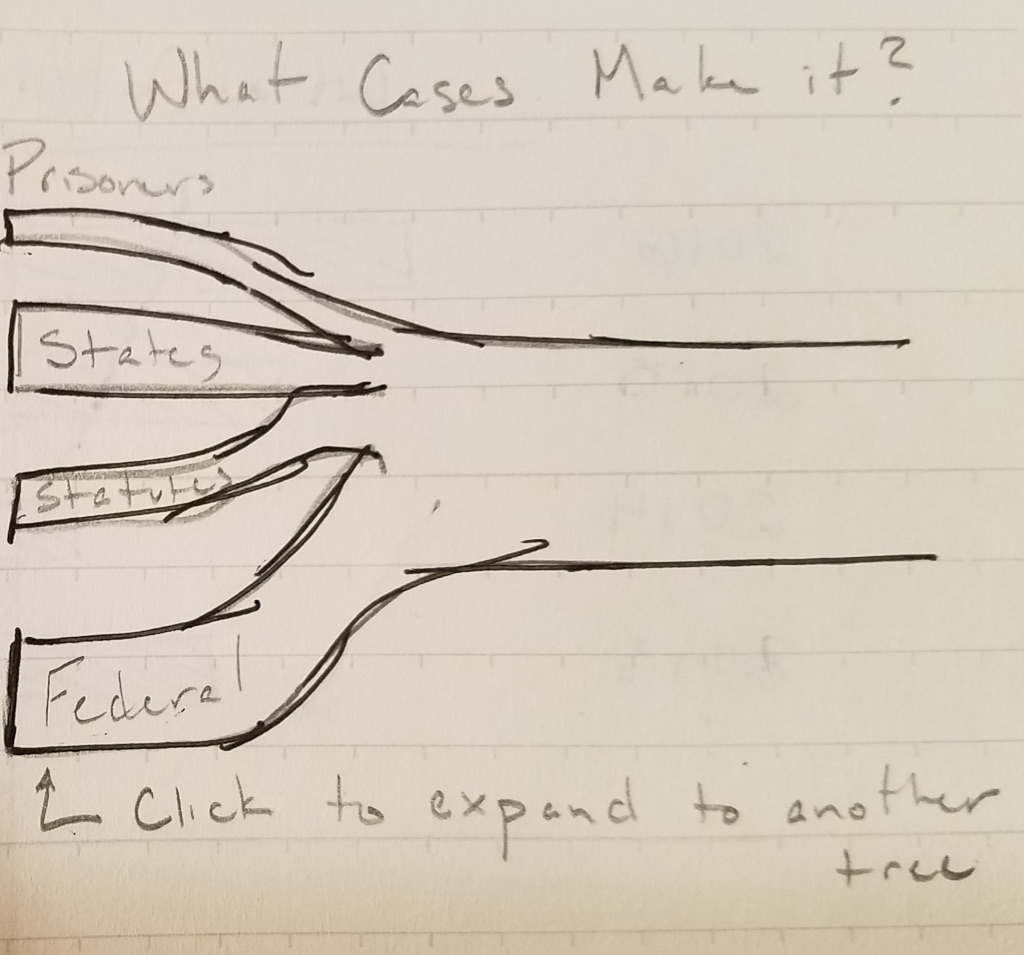 What Cases Make it?
Prisoners
States
Statutes
Federal
Click to expand to another
tree